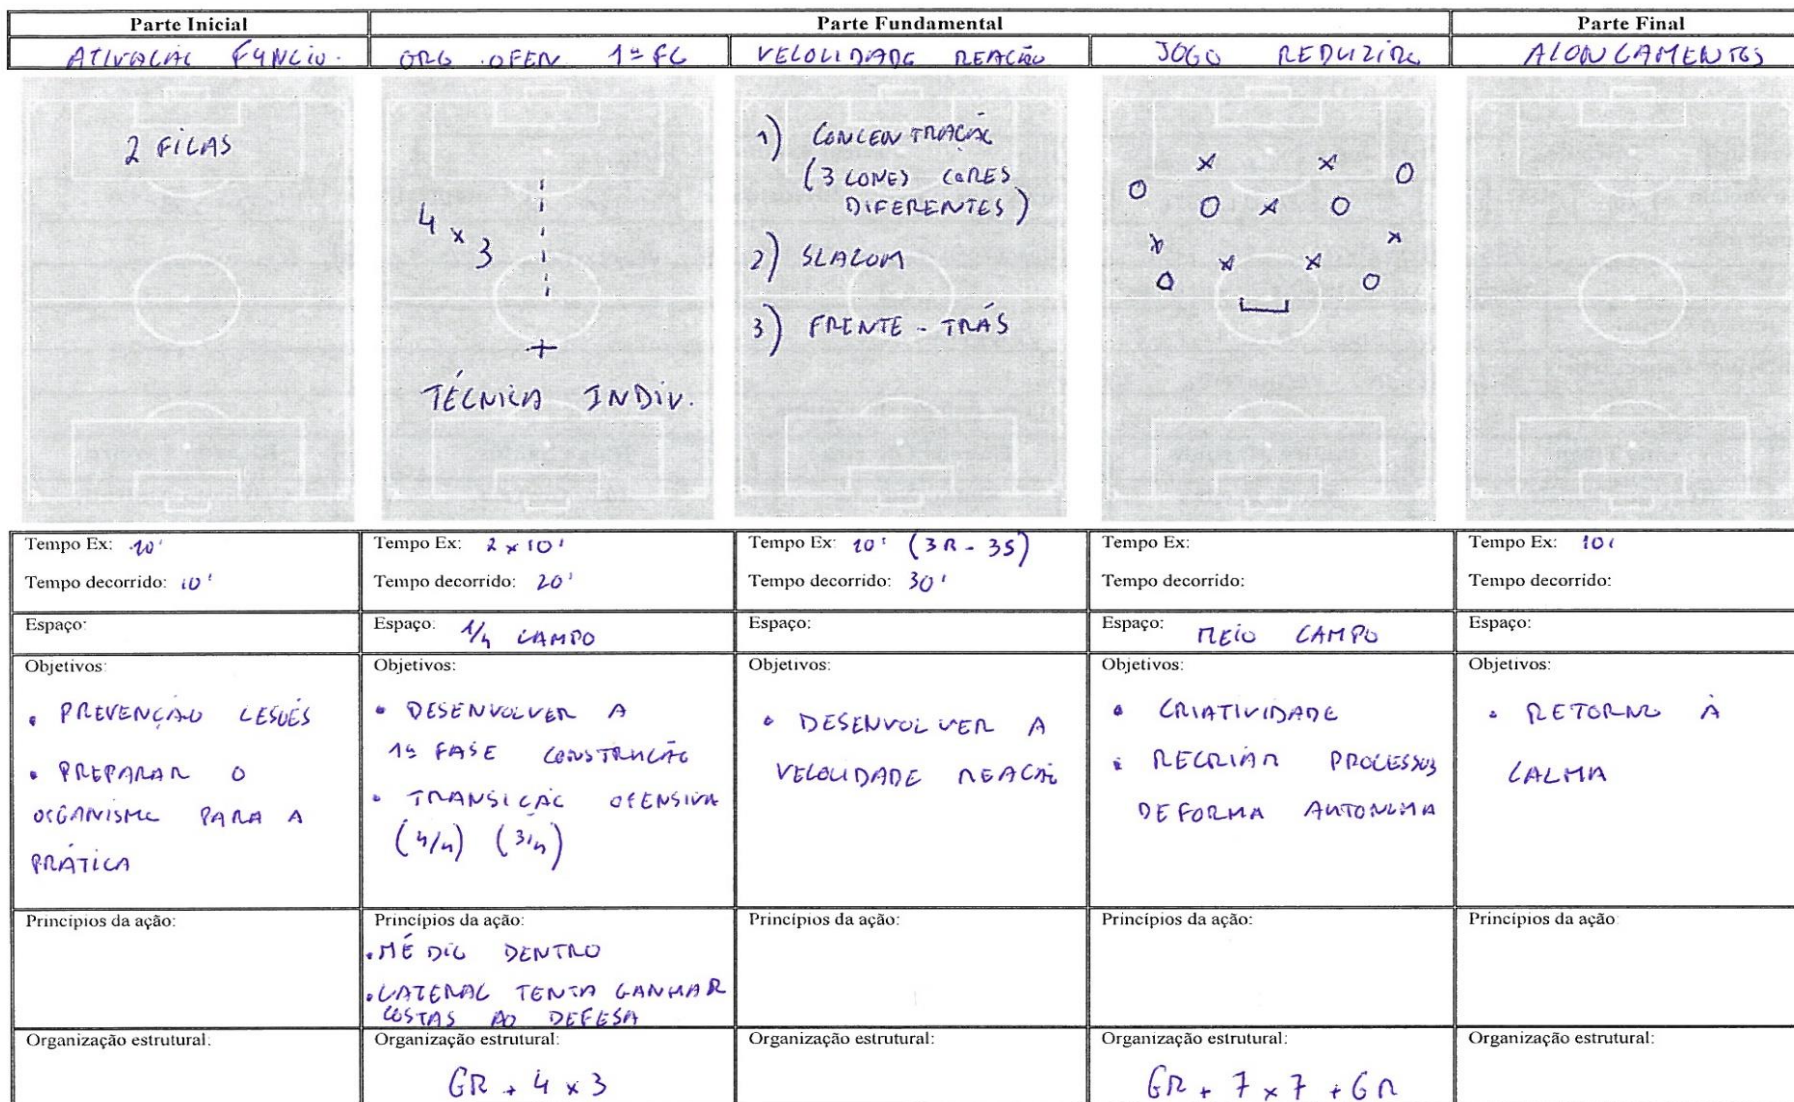 Parte Inicial
Parte Fundamental
Parte Final
ATIVAÇÃO FUNCIO.
ORG. OFEN 1ª FC
VELOCIDADE REAÇÃO
JOGO REDUZIDO
ALONGAMENTOS
2 FILAS
4 x 3
TÉCNICA INDIV.
1) CONCENTRAÇÃO
(3 CONES CORES
DIFERENTES)
2) SLALOM
3) FRENTE - TRÁS
Tempo Ex: 10'
Tempo decorrido: 10'
Tempo Ex: 2 x 10'
Tempo decorrido: 20'
Tempo Ex: 10' (3R - 3S)
Tempo decorrido: 30'
Tempo Ex:
Tempo decorrido:
Tempo Ex: 10'
Tempo decorrido:
Espaço:
Espaço: 1/4 CAMPO
Espaço:
Espaço: MEIO CAMPO
Espaço:
Objetivos:
• PREVENÇÃO LESÕES
• PREPARAR O
ORGANISMO PARA A
PRÁTICA
Objetivos:
• DESENVOLVER A
1ª FASE CONSTRUÇÃO
• TRANSIÇÃO OFENSIVA
(4/4) (3/4)
Objetivos:
• DESENVOLVER A
VELOCIDADE REAÇÃO
Objetivos:
• CRIATIVIDADE
• RECRIAR PROCESSOS
DE FORMA AUTONOMA
Objetivos:
• RETORNO À
CALMA
Princípios da ação:
Princípios da ação:
• MÉDIO DENTRO
• LATERAL TENTA GANHAR
COSTAS AO DEFESA
Princípios da ação:
Princípios da ação:
Princípios da ação:
Organização estrutural:
Organização estrutural:
GR + 4 x 3
Organização estrutural:
Organização estrutural:
GR + 7 x 7 + GR
Organização estrutural: